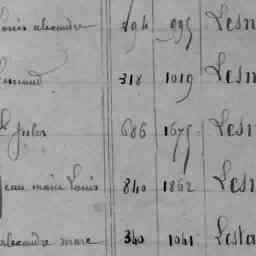 Louis alexandre 294 995 Lesn
Fernand 318 1019 Lesn
Jules 686 1675 Lesn
Jean marie Louis 840 1862 Lesn
alexandre marc 340 1041 Lesta